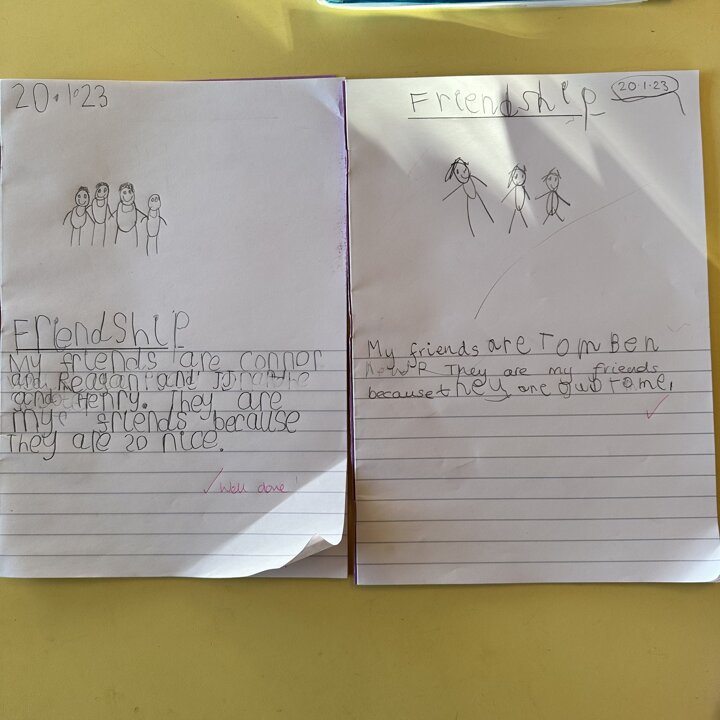 20.1.23
FrIendShIP
My friends are conner
and Reagan and
and Henry. They are
my friends because
They are zo nice.
Well done!
Friendship
20.1.23
My friends are Tom Ben
They are my friends
because they are